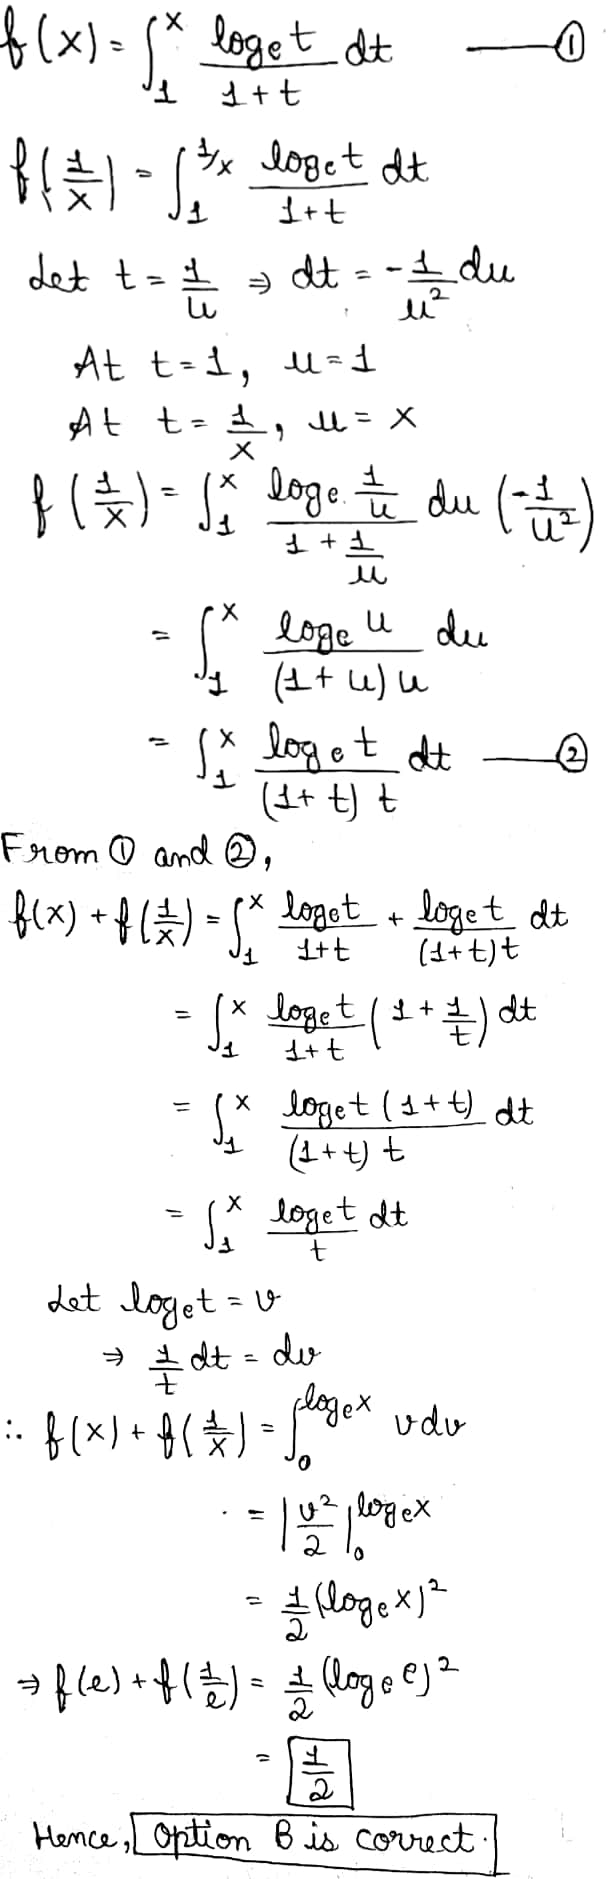 f(x) = ∫₁ˣ (logₑt)/(1+t) dt —— ①
f(1/x) = ∫₁^(1/x) (logₑt)/(1+t) dt
Let t = 1/u ⇒ dt = -1/u² du
At t = 1, u = 1
At t = 1/x, u = x
f(1/x) = ∫₁ˣ (logₑ 1/u)/(1 + 1/u) du (-1/u²)
= ∫₁ˣ (logₑ u)/((1+u)u) du
= ∫₁ˣ (logₑt)/((1+t)t) dt —— ②
From ① and ②,
f(x) + f(1/x) = ∫₁ˣ (logₑt)/(1+t) + (logₑt)/((1+t)t) dt
= ∫₁ˣ (logₑt)/(1+t) (1 + 1/t) dt
= ∫₁ˣ (logₑt (1+t))/((1+t)t) dt
= ∫₁ˣ (logₑt)/t dt
Let logₑt = v
⇒ 1/t dt = dv
∴ f(x) + f(1/x) = ∫₀^(logₑx) v dv
= |v²/2|₀^(logₑx)
= 1/2 (logₑx)²
⇒ f(e) + f(1/e) = 1/2 (logₑe)²
= 1/2
Hence, Option B is correct.